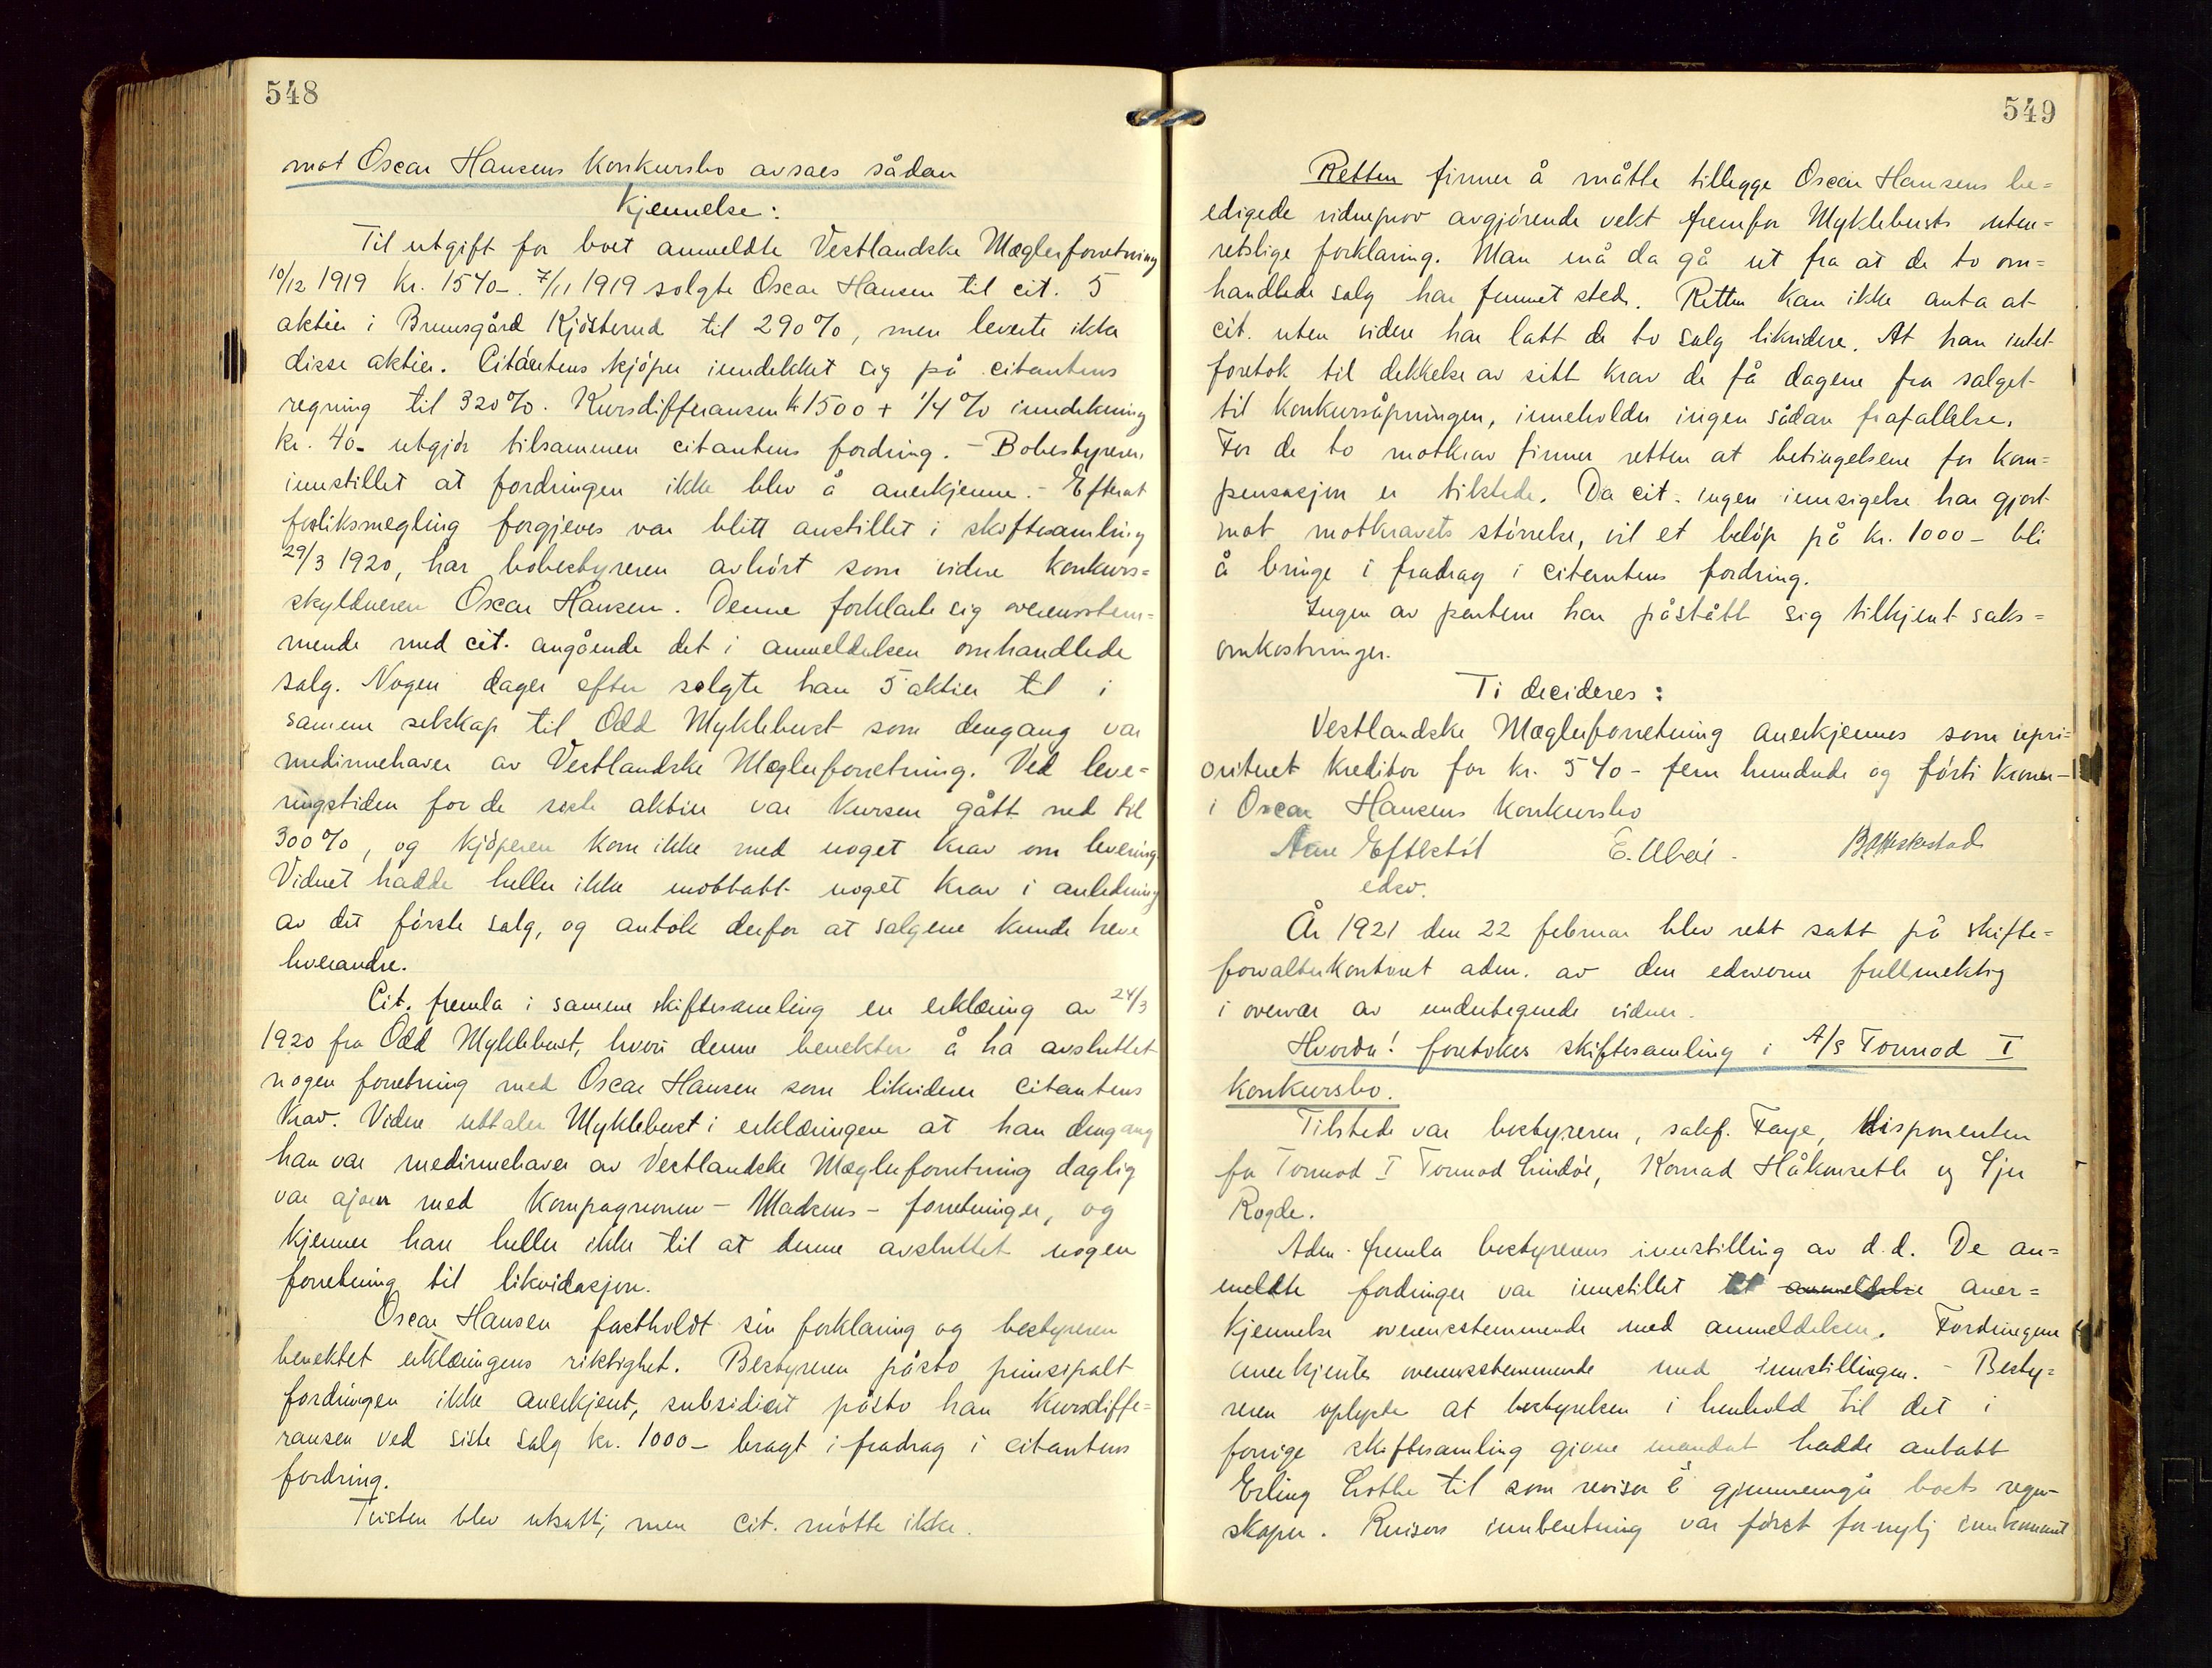 548
mot Oscar Hansens Konkursbo avsaes sådan
Kjennelse:
Til utgift for boet anmeldte Vestlandske Mæglerforretning
10/12 1919 kr. 1540-. 7/11 1919 solgte Oscar Hansen til cit. 5
aktier i Bruusgård Kjøsterud til 290%, men leverte ikke
disse aktier. Citantens kjøper inndekket sig på citantens
regning til 320%. Kursdifferansen kr 1500 + 1/4% inndekning
kr. 40- utgjør tilsammen citantens fordring. - Bobestyreren
innstillet at fordringen ikke blev å anerkjenne. - Efterat
forliksmegling forgjeves var blitt anstillet i skiftesamling
29/3 1920, har bobestyreren avhørt som vidne konkurs=
skyldneren Oscar Hansen. Denne forklarte sig overensstem=
mende med cit. angående det i anmeldelsen omhandlede
salg. Nogen dager efter solgte han 5 aktier til i
samme selskap til Odd Myklebust som dengang var
medinnehaver av Vestlandske Mæglerforretning. Ved leve=
ringstiden for de siste aktier var kursen gått ned til
300%, og kjøperen kom ikke med noget krav om levering.
Vidnet hadde heller ikke mottatt noget krav i anledning
av det første salg, og antok derfor at salgene kunde heve
hverandre.
Cit. fremla i samme skiftesamling en erklæring av 24/3
1920 fra Odd Myklebust, hvori denne benekter å ha avsluttet
nogen forretning med Oscar Hansen som likviderer citantens
krav. Videre uttaler Myklebust i erklæringen at han dengang
han var medinnehaver av Vestlandske Mæglerforretning daglig
var ajour med Kompagnonen - Madsens - forretninger, og
kjenner han heller ikke til at denne avsluttet nogen
forretning til likvidasjon.
Oscar Hansen fastholdt sin forklaring og bestyreren
benektet erklæringens riktighet. Bestyreren påsto prinsipalt
fordringen ikke anerkjent, subsidiært påsto han kursdiffe=
ransen ved siste salg kr. 1000- bragt i fradrag i citantens
fordring.
Tvisten blev utsatt, men cit. møtte ikke.
549
Retten finner å måtte tillegge Oscar Hansens be=
edigede vidneprov avgjørende vekt fremfor Myklebusts uten=
retslige forklaring. Man må da gå ut fra at de to om=
handlede salg har funnet sted. Retten kan ikke anta at
cit. uten videre har latt de to salg likvidere. At han intet
foretok til dekkelse av sitt krav de få dagene fra salget
til konkursåpningen, inneholder ingen sådan frafallelse.
For de to motkrav finner retten at betingelsene for kom=
pensasjon er tilstede. Da cit. ingen innsigelse har gjort
mot motkravets størrelse, vil et beløp på kr. 1000- bli
å bringe i fradrag i citantens fordring.
Ingen av partene har påstått sig tilkjent saks=
omkostninger.
Ti decideres:
Vestlandske Mæglerforretning anerkjennes som upri=
oritert kreditor for kr. 540- fem hundrede og førti kroner-
i Oscar Hansens Konkursbo
Aare Eftestøl E. Ubøe. B. Meskestad
edsv.
År 1921 den 22 februar blev rett satt på skifte=
forvalterkontoret adm. av den edsvorne fullmektig
i overvær av undertegnede vidner.
Hvorda! foretokes skiftesamling i A/S Tormod I
konkursbo.
Tilstede var bestyreren, sakf. Faye, disponenten
for Tormod I Tormod Lindøe, Konrad Håkonseth og Sjur
Rogde.
Adm. fremla bestyrerens innstilling av d.d. De an=
meldte fordringer var innstillet til anmeldelse aner=
kjennelse overensstemmende med anmeldelsen. Fordringene
anerkjentes overensstemmende med innstillingen. - Besty=
reren oplyste at bestyrelsen i henhold til det i
forrige skiftesamling givne mandat hadde antatt
Erling Lothe til som revisor å gjennemgå boets regn-
skaper. Revisors innberetning var først fornylig innkommet